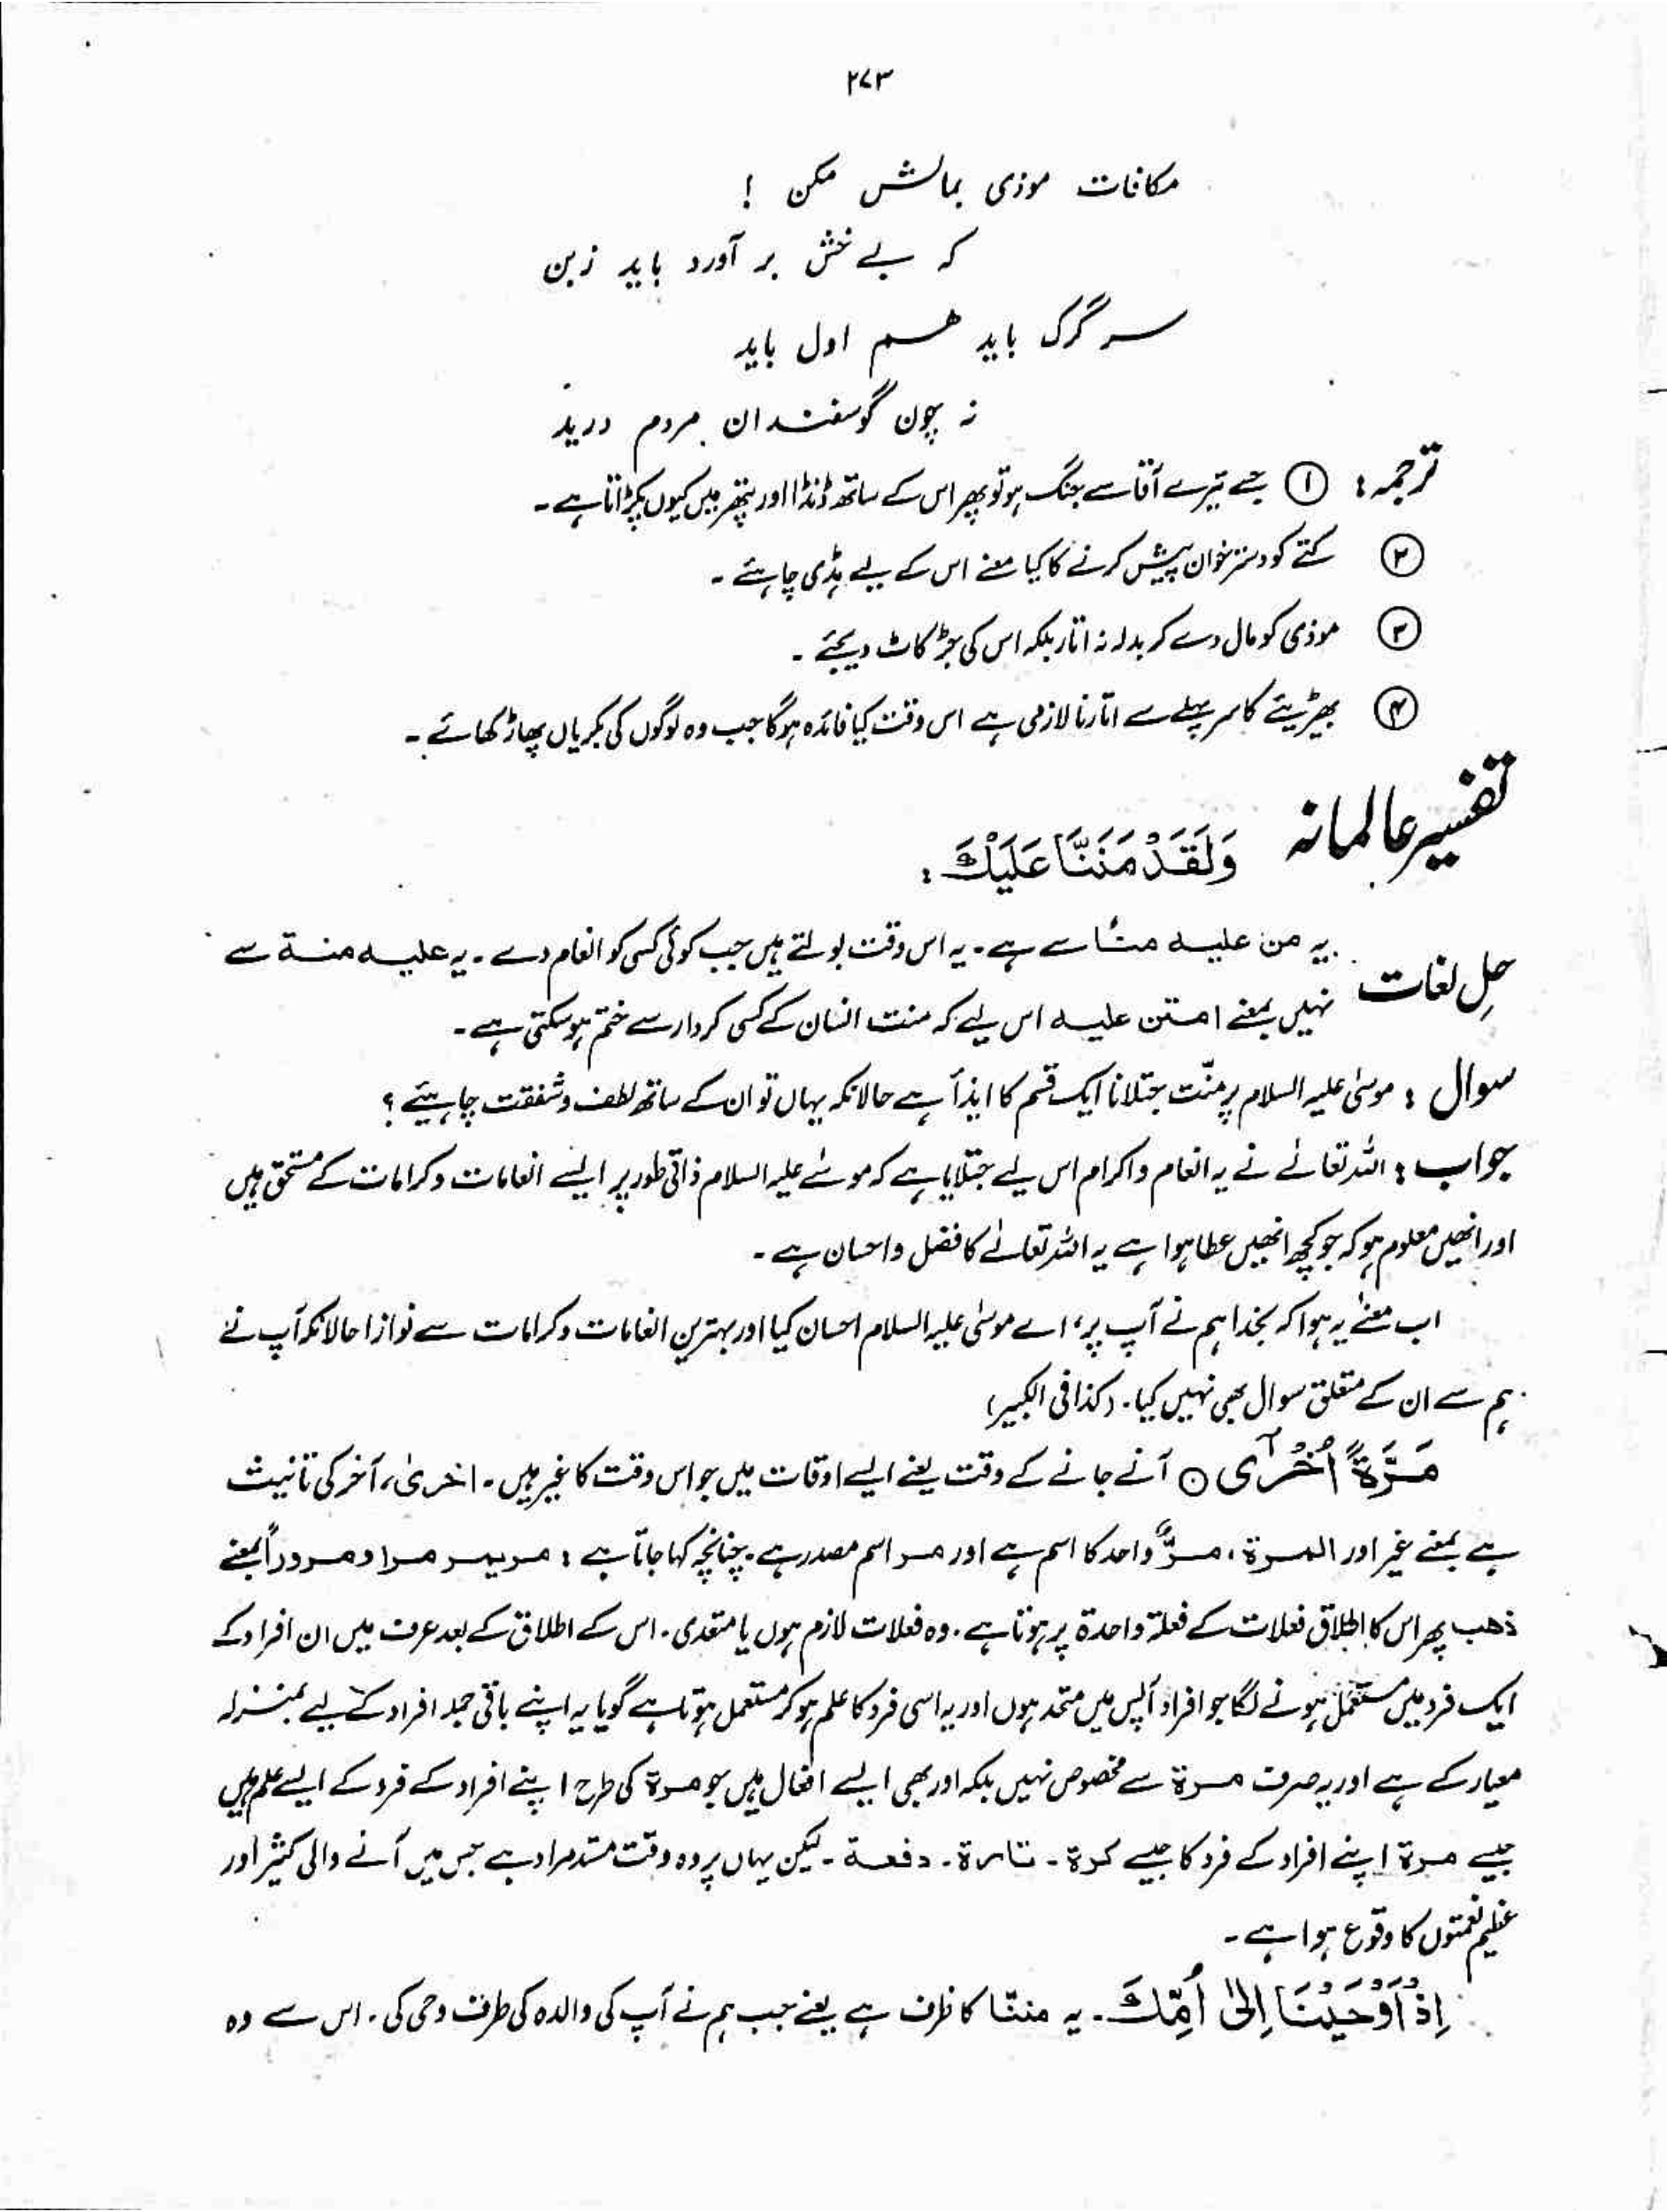 ۲۷۳
مکافات موذی بمالش مکن !
کہ بے خش بر آورد باید زبن
سر گرگ باید ہم اول باید
نہ چون گوسفندان مردم درید
ترجمہ: ① جسے تیرے آقا سے جنگ ہو تو پھر اس کے ساتھ ڈنڈا اور پتھر میں کیوں پکڑاتا ہے۔
② کتے کو دسترخوان پیش کرنے کا کیا معنے اس کے لیے ہڈی چاہئے۔
③ موذی کو مال دے کر بدلہ نہ اتار بلکہ اس کی جڑ کاٹ دیجئے۔
④ بھیڑیئے کا سر پہلے سے اتارنا لازمی ہے اس وقت کیا فائدہ ہوگا جب وہ لوگوں کی بکریاں پھاڑ کھائے۔
تفسیر عالمانہ وَلَقَدْ مَنَنَّا عَلَيْكَ :
حل لغات یہ من علیہ منّاً سے ہے۔ یہ اس وقت بولتے ہیں جب کوئی کسی کو انعام دے۔ یہ علیہ منة سے
نہیں بمعنے امتن علیہ اس لیے کہ منت انسان کے کسی کردار سے ختم ہوسکتی ہے۔
سوال : موسٰی علیہ السلام پر منّت جتلانا ایک قسم کا ایذأ ہے حالانکہ یہاں تو ان کے ساتھ لطف و شفقت چاہیئے ؟
جواب : اللہ تعالٰے نے یہ انعام و اکرام اس لیے جتلایا ہے کہ موسٰے علیہ السلام ذاتی طور پر ایسے انعامات و کرامات کے مستحق ہیں
اور انھیں معلوم ہو کہ جو کچھ انھیں عطا ہوا ہے یہ اللہ تعالٰے کا فضل و احسان ہے۔
اب معنٰے یہ ہوا کہ بخدا ہم نے آپ پر، اے موسٰی علیہ السلام احسان کیا اور بہترین انعامات و کرامات سے نوازا حالانکہ آپ نے
ہم سے ان کے متعلق سوال بھی نہیں کیا۔ (کذا فی الکبیر)
مَرَّةً اُخْرٰٓى ○ آنے جانے کے وقت یعنے ایسے اوقات میں جو اس وقت کا غیر ہیں۔ اخریٰ، آخر کی تانیث
ہے بمعنے غیر اور المرة، مرٌّ واحد کا اسم ہے اور مر اسم مصدر ہے۔ چنانچہ کہا جاتا ہے : مر یمر مرا و مروراً بمعنے
ذھب پھر اس کا اطلاق فعلات کے فعلة واحدة پر ہوتا ہے۔ وہ فعلات لازم ہوں یا متعدی۔ اس کے اطلاق کے بعد عرف میں ان افراد کے
ایک فرد میں مستعمل ہونے لگا جو افراد آپس میں متحد ہوں اور یہ اسی فرد کا علم ہو کر مستعمل ہوتا ہے گویا یہ اپنے باقی جملہ افراد کے لیے بمنزلہ
معیار کے ہے اور یہ صرف مرة سے مخصوص نہیں بلکہ اور بھی ایسے افعال ہیں جو مرة کی طرح اپنے افراد کے فرد کے ایسے علم ہیں
جیسے مرة اپنے افراد کے فرد کا جیسے کرة۔ تارة۔ دفعة۔ لیکن یہاں پر وہ وقت ممتد مراد ہے جس میں آنے والی کثیر اور
عظیم نعمتوں کا وقوع ہوا ہے۔
اِذْ اَوْحَيْنَا اِلٰى اُمِّكَ۔ یہ مننّا کا ظرف ہے یعنے جب ہم نے آپ کی والدہ کی طرف وحی کی۔ اس سے وہ